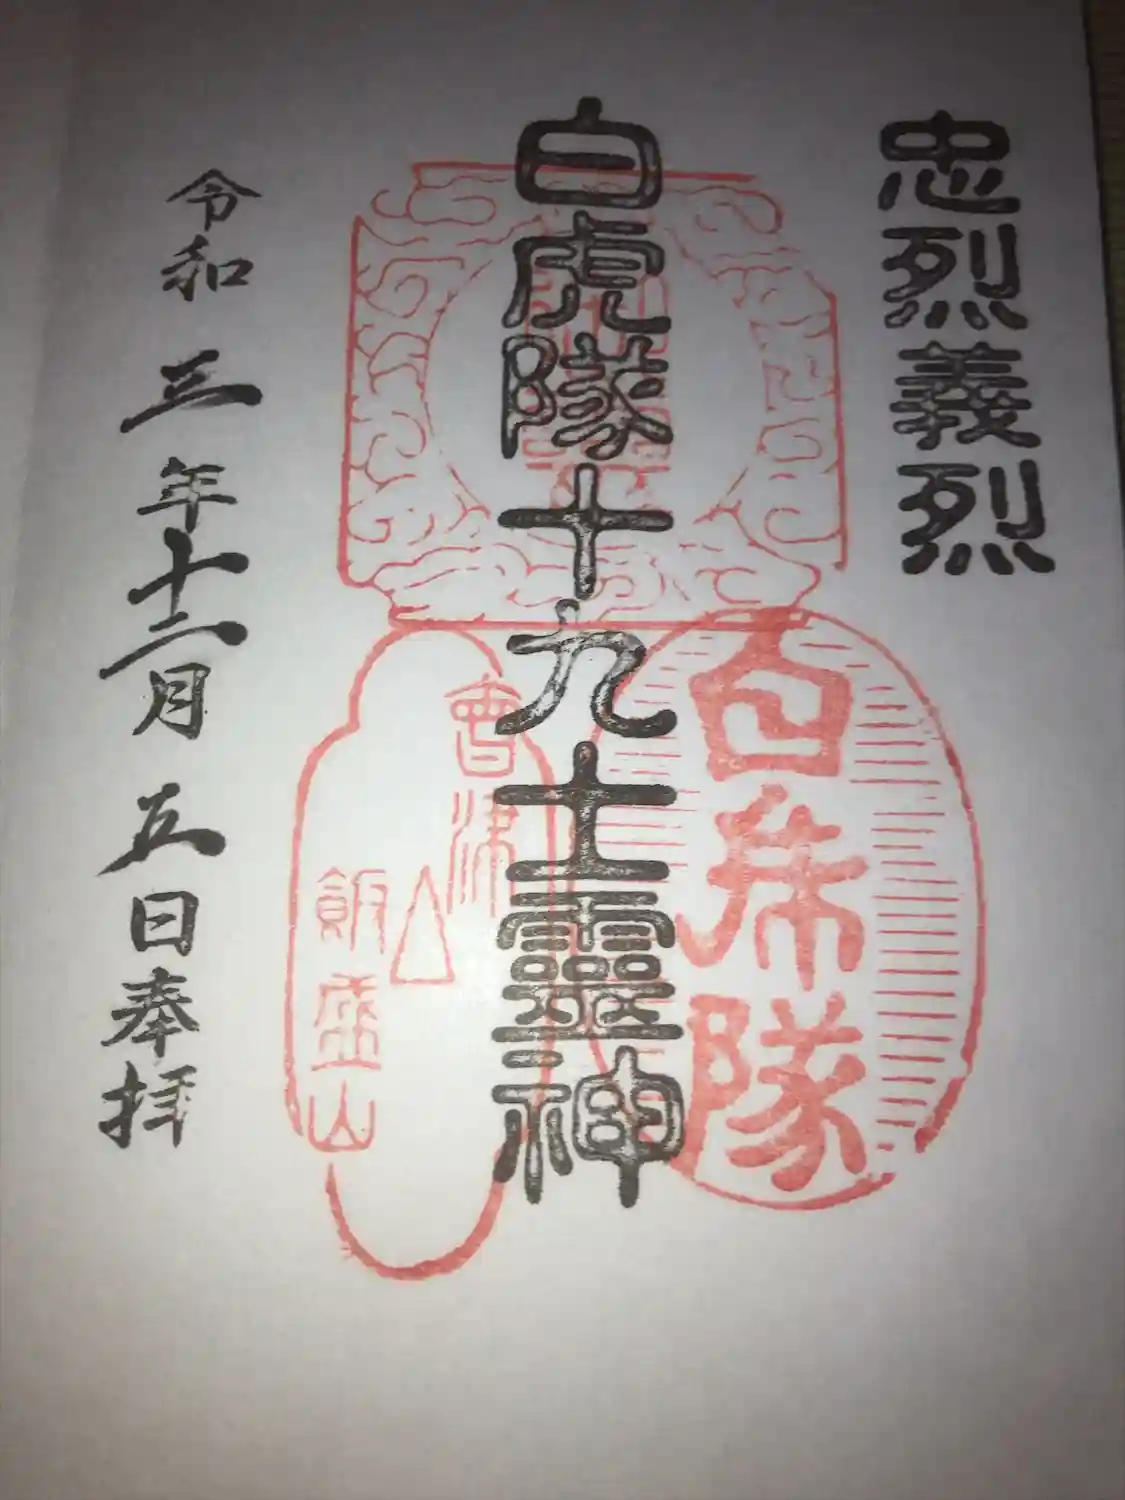 忠烈義烈
白虎隊十九士靈神
白虎隊
會津
飯盛山
令和三年十二月五日奉拝